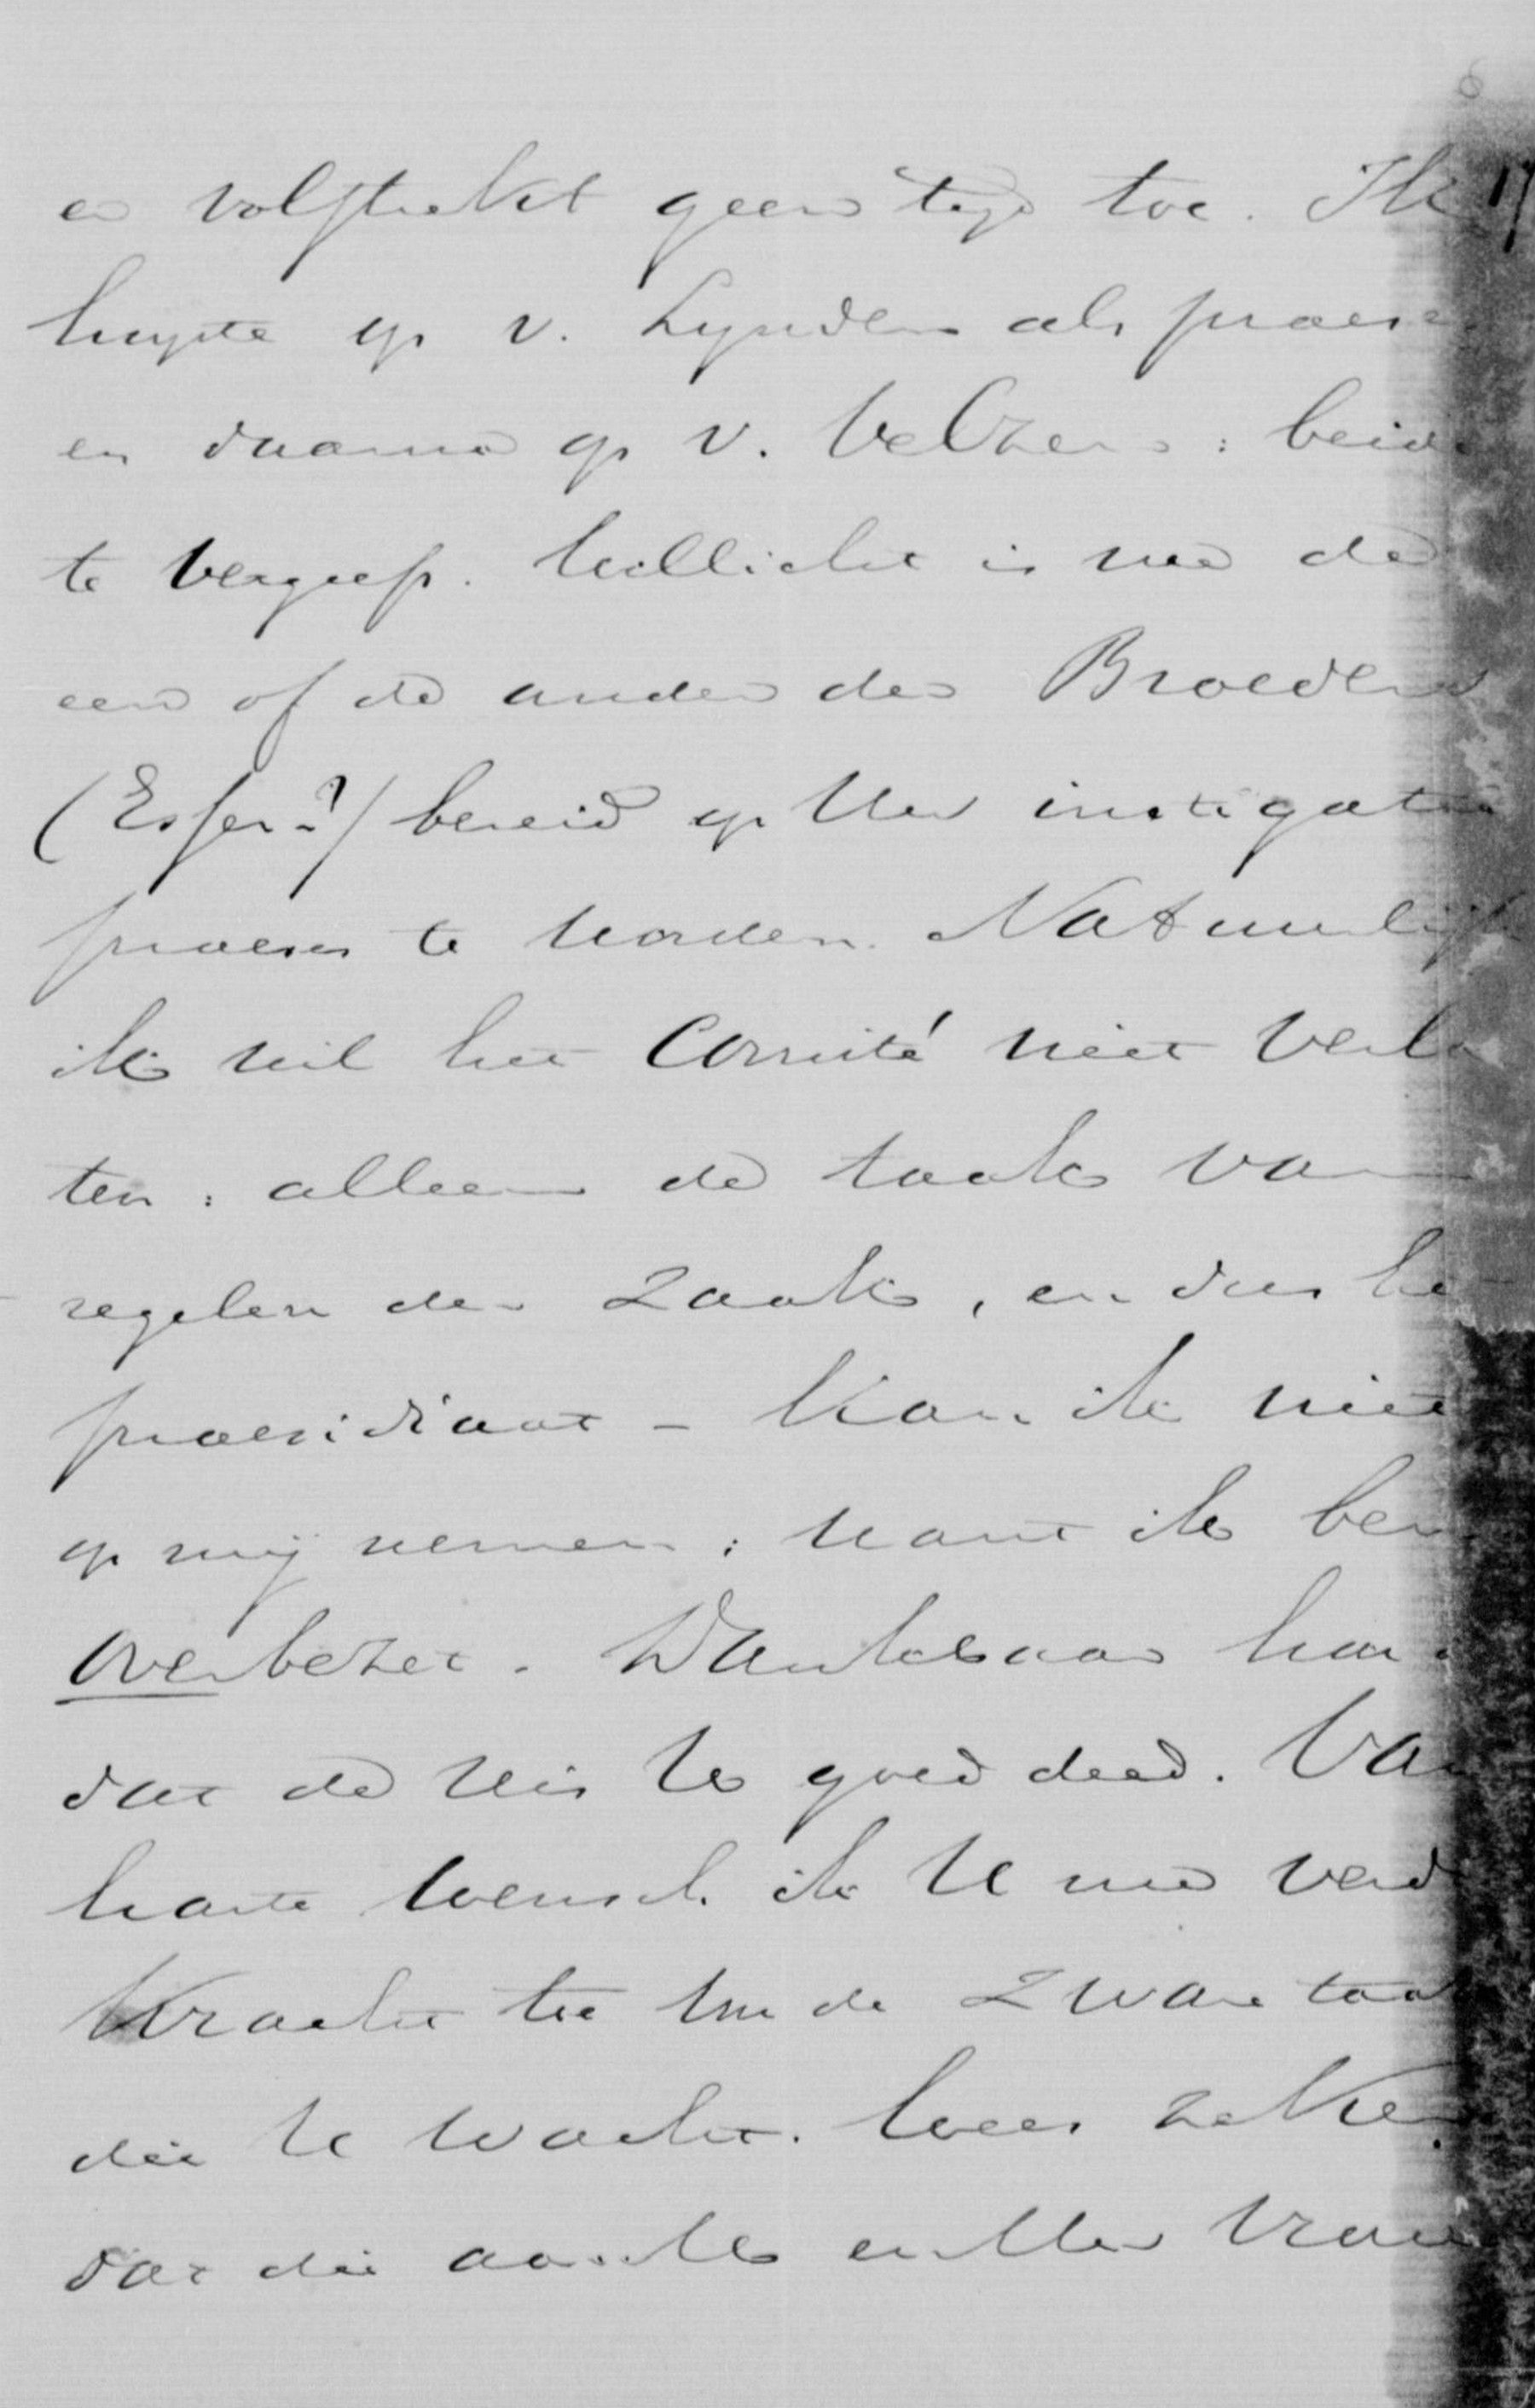 er volstrekt geen tijd toe. Ik
hoopte op v. Lynden als praeses
en daarna op v. Velzen: beide
te vergeefs. Wellicht is nu de
een of de ander der Broeders
(Esser?) bereid op Uw instigatie
praeses te worden. Natuurlijk
ik wil het Comité niet verla
ten: alleen de taak van
regelen der zaak, en dus he
praesidiaat - kan ik niet
op mij nemen; want ik ben
overbezet. Dankbaar
dat de reis U goed deed. Van
harte wensch ik U nu
kracht toe tot de zware taak
die U wacht. Wees zeker
dat die aan U en Uw